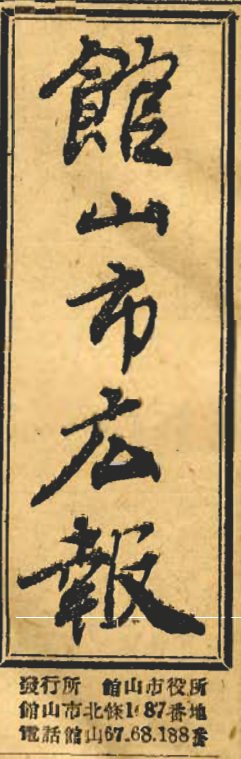 館山市広報
発行所 館山市役所
館山市北條1687番地
電話館山67.68.188番